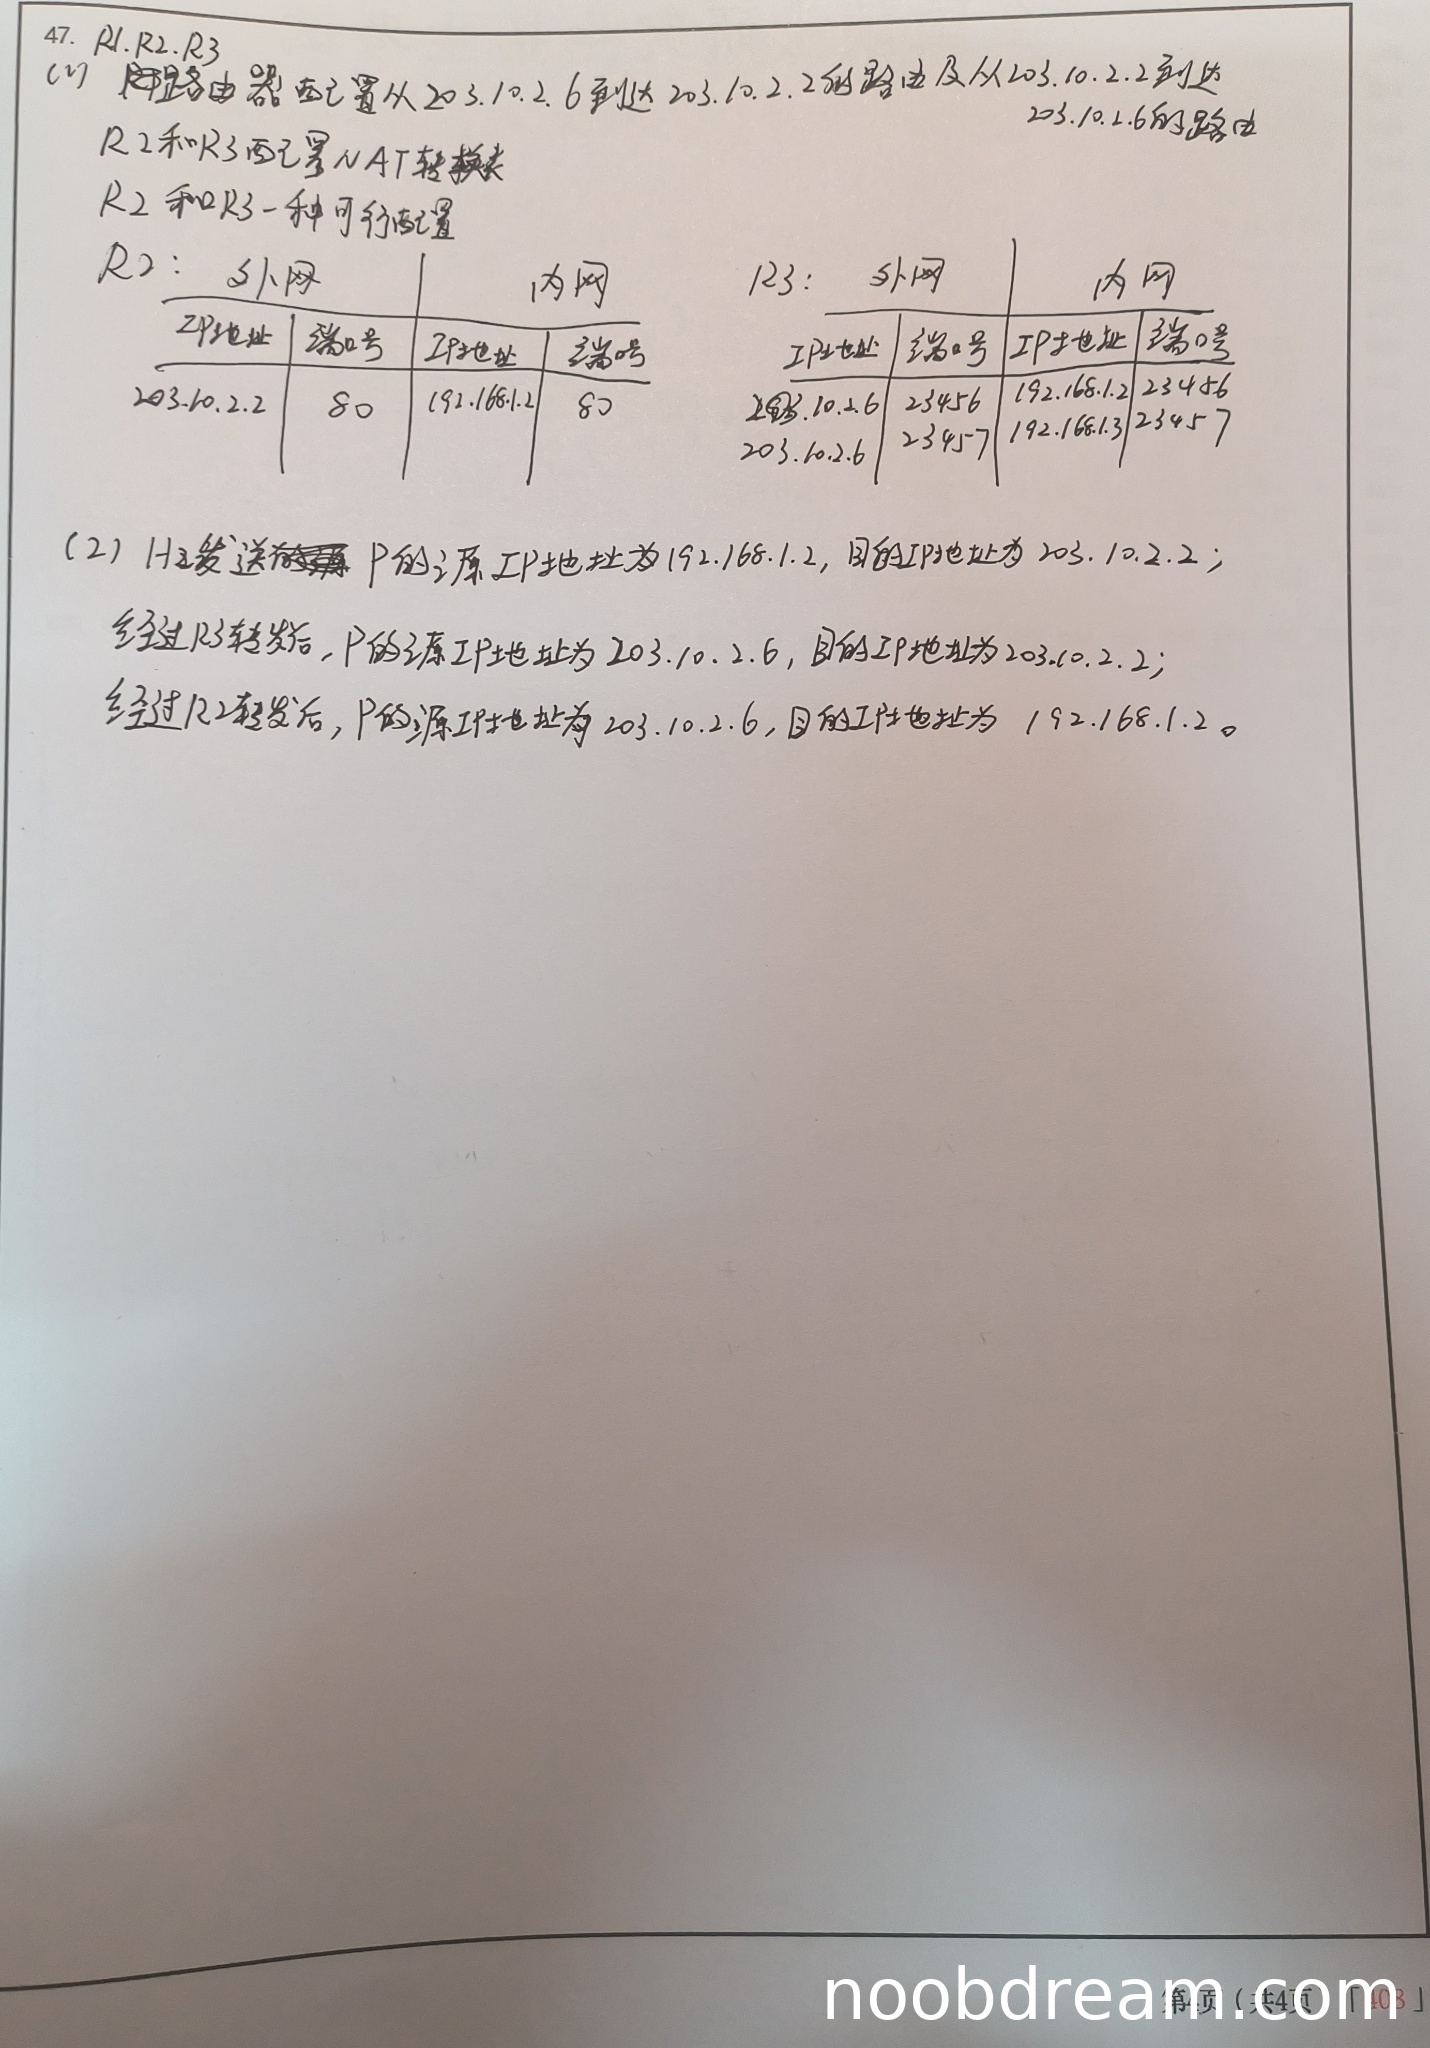 47. R1.R2.R3
(1) 路由器配置从203.10.2.6到达203.10.2.2的路由及从203.10.2.2到达
203.10.2.6的路由
R2和R3配置NAT转换表
R2和R3一种可行配置
R2: 外网 内网
IP地址 端口号 IP地址 端口号
203.10.2.2 80 192.168.1.2 80
R3: 外网 内网
IP地址 端口号 IP地址 端口号
203.10.2.6 23456 192.168.1.2 23456
203.10.2.6 23457 192.168.1.3 23457
(2) H2发送 P的源IP地址为192.168.1.2, 目的IP地址为203.10.2.2;
经过R3转发后, P的源IP地址为203.10.2.6, 目的IP地址为203.10.2.2;
经过R2转发后, P的源IP地址为203.10.2.6, 目的IP地址为 192.168.1.2。
noobdream.com
第4页(共4页) 「408」